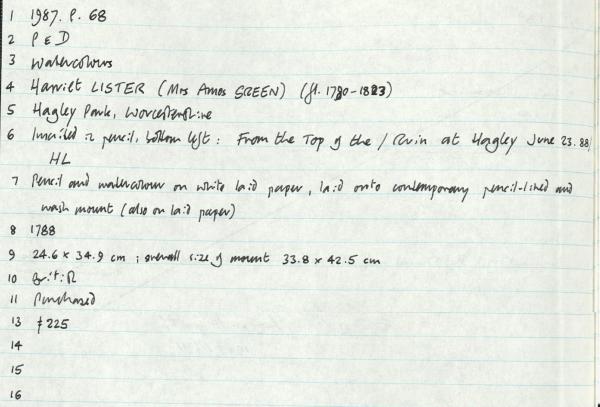 1 1987. P. 68
2 P & D
3 Watercolours
4 Harriet LISTER (Mrs Amos GREEN) (fl. 1790-1823)
5 Hagley Park, Worcestershire
6 Inscribed in pencil, bottom left: From the Top of the / Ruin at Hagley June 23. 88/
HL
7 Pencil and watercolour on white laid paper, laid onto contemporary pencil-lined and
wash mount (also on laid paper)
8 1788
9 24.6 x 34.9 cm ; overall size of mount 33.8 x 42.5 cm
10 British
11 Purchased
13 £225
14
15
16